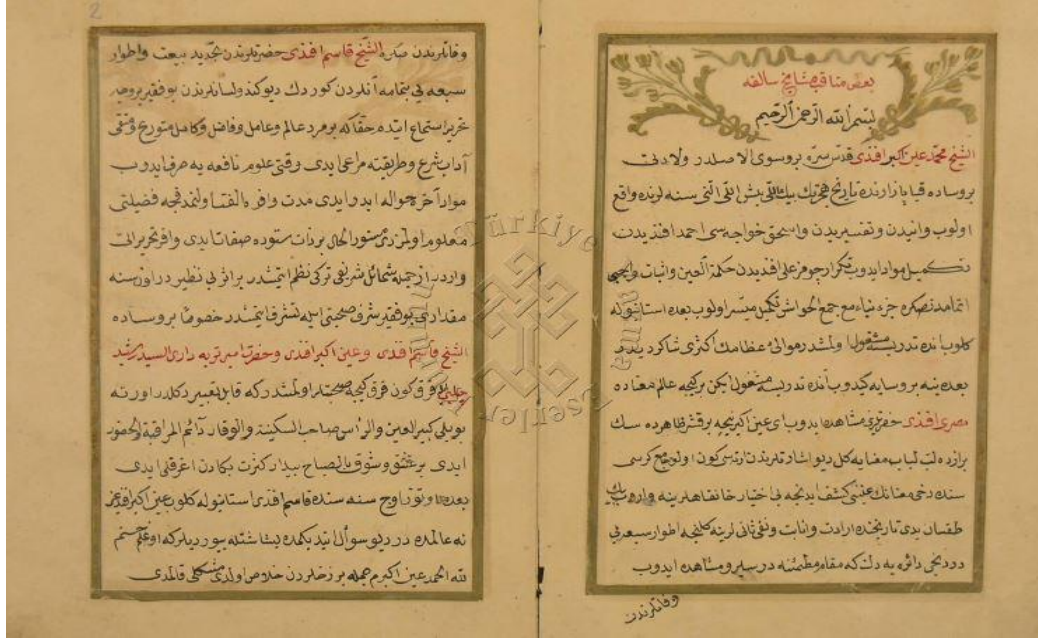 بعض مناقب مشايخ سالفه
بسم الله الرحمن الرحيم
الشيخ محمد عين اكبر افندى قدس سره بروسوى الاصلدر ولادتى
بروساده قيا بازارنده تاريخ هجرتك بيك اللى التى سنه لرنده واقع
اولوب وانيدن وتفسيريدن واسحق خواجه سى احمد افنديدن
تكميل مواد ايدوب تكرار چومز على افنديدن حكمة العين واثبات واجبى
اتمامدنصكره مع جمع الحواشى تكميل ميسر اولوب بعده استانبوله
كلوب انده تدريسه مشغول اولمشدر موالى عظامك اكثرى شاكرديدر
بعده ينه بروسايه كيدوب انده تدريسه مشغول ايكن بر كيجه عالم معناده
مصرى افندى حضرتلرينى مشاهده ايدوب اى عين اكبر نيجه بر قشر ظاهرده سك
براز ده لب لباب معنايه كل ديو اشارتلرندن ارتسى كون اولو جامع كرسى
سنده دخى معنانك عينى كشف ايدنجه بى اختيار خانقاهلرينه واروب بيك
طقسان يدى تاريخنده ارادت وانابت ونفى ثانى لرينه كلنجه اطوار سبعه نى
دردنجى دائره يه دك كه مقام مطمئنه در سير ومشاهده ايدوب
وفاتلرندن
2
وفاتلرندن صكره الشيخ قاسم افندى حضرتلرندن تجديد بيعت واطوار
سبعه يى بتمامه آنلردن كوردك ديو كندو لسانلرندن بو فقير بروجه
تحرير استماع ايتدم حقا كه بر مرد عالم وعامل وفاضل وكامل متورع ومتقى
آداب شرع وطريقته مراعى ايدى وقتى علوم نافعه يه صرف ايدوب
موارد آخره حواله ايدر ايدى مدت وافر التفات اولنمدقجه فضيلتى
معلوم اولمزدى مستور الحال بر ذات ستوده صفات ايدى وافر تحريراتى
واردر از جمله شمائل شريفى تركى نظم ايتمشدر بر اثر بى نظيردر اون سنه
مقدارى بو فقير شرف صحبتى ايله تشرف ايتمشدر خصوصا بروساده
الشيخ قاسم افندى وعين اكبر افندى وحضرت امير تربه دارى السيد رشيد
قرق كون قرق كيجه صحبتلر اولمشدر كه قابل تعبير دكلدر اورته
بويلى كبير العين والرأس صاحب السكينة والوقار دائم المراقبة والحضور
ايدى بر عشق وشوق بالصباح بيدار كثرت بكادن اغرقلى ايدى
بعده اوتوز اوچ سنه سنده قاسم افندى استانبوله كلوب عين اكبر افنديمز
نه عالمده در ديو سؤال ايتديكمده بشاشتله بيورديلر كه اوغلم جسنم
لله الحمد عين اكبرم جمله برزخلردن خلاص اولدى مشكلى قالمدى